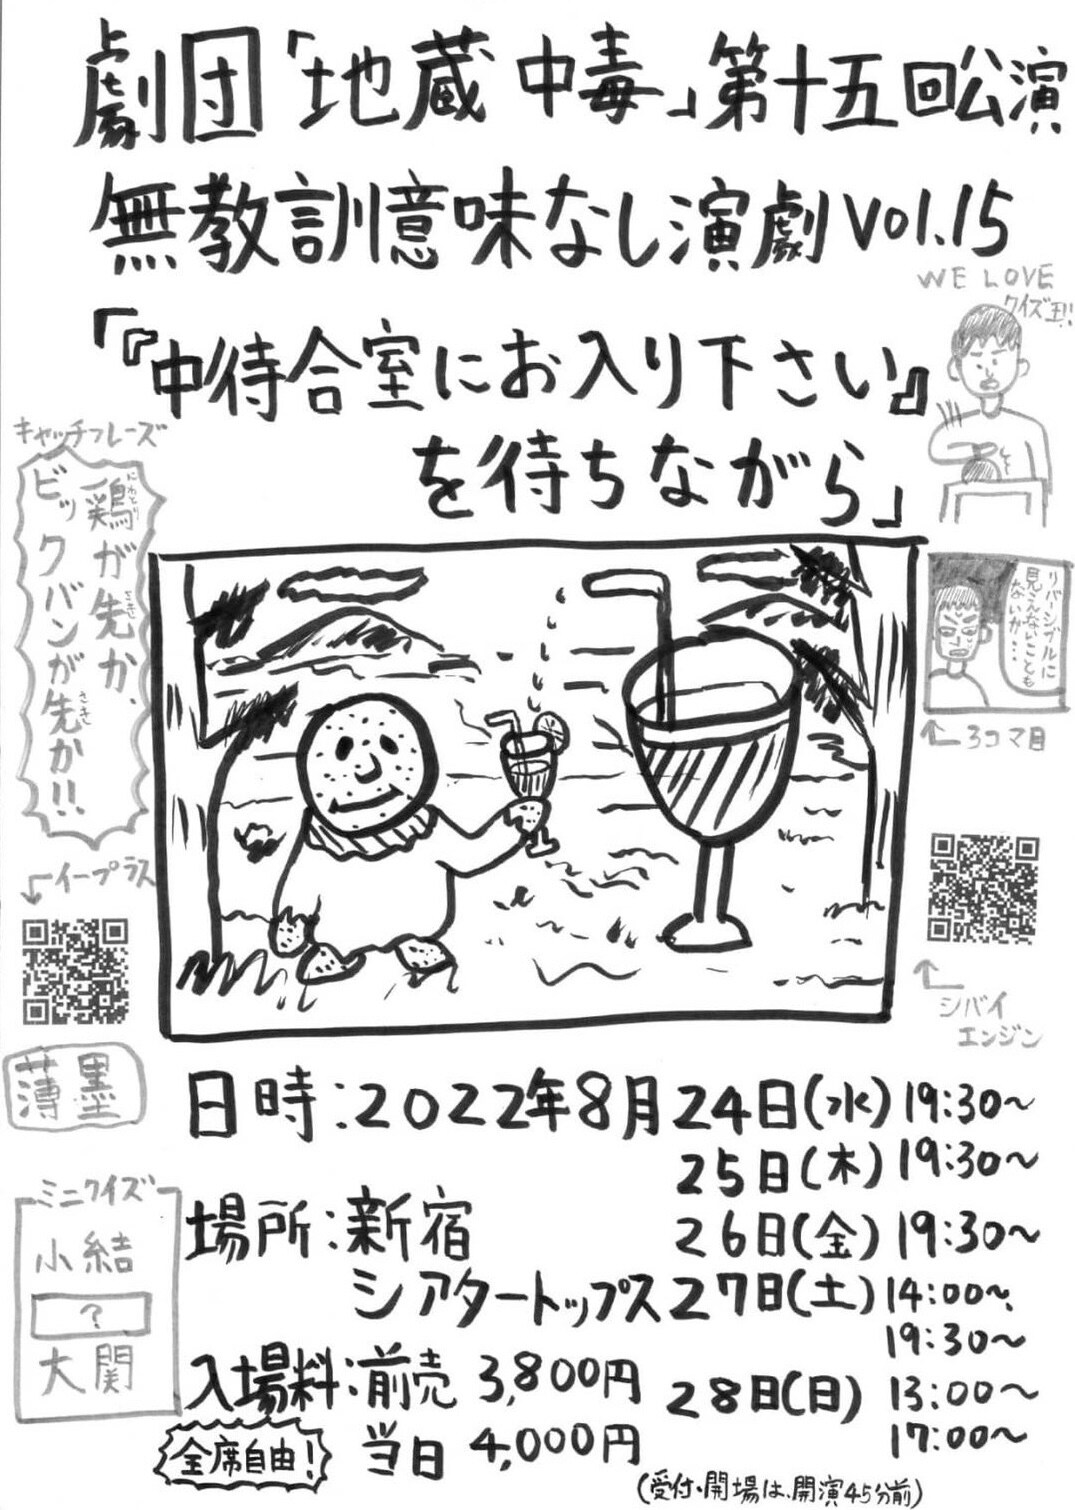 劇団「地蔵中毒」第十五回公演
無教訓意味なし演劇vol.15
「『中待合室にお入り下さい』
を待ちながら」
WE LOVE
クイズ王!!
キャッチフレーズ
鶏が先か、
にわとり
さき
ビックバンが先か!!
さき
リバーシブルに
見えないことも
ないが…
3コマ目
イープラス
シバイ
エンジン
薄墨
ミニクイズ
小結
?
大関
日時:2022年8月24日(水)19:30~
25日(木)19:30~
26日(金)19:30~
27日(土)14:00~、
19:30~
28日(日)13:00~
17:00~
場所:新宿
シアタートップス
入場料:前売 3,800円
当日 4,000円
全席自由!
(受付・開場は、開演45分前)